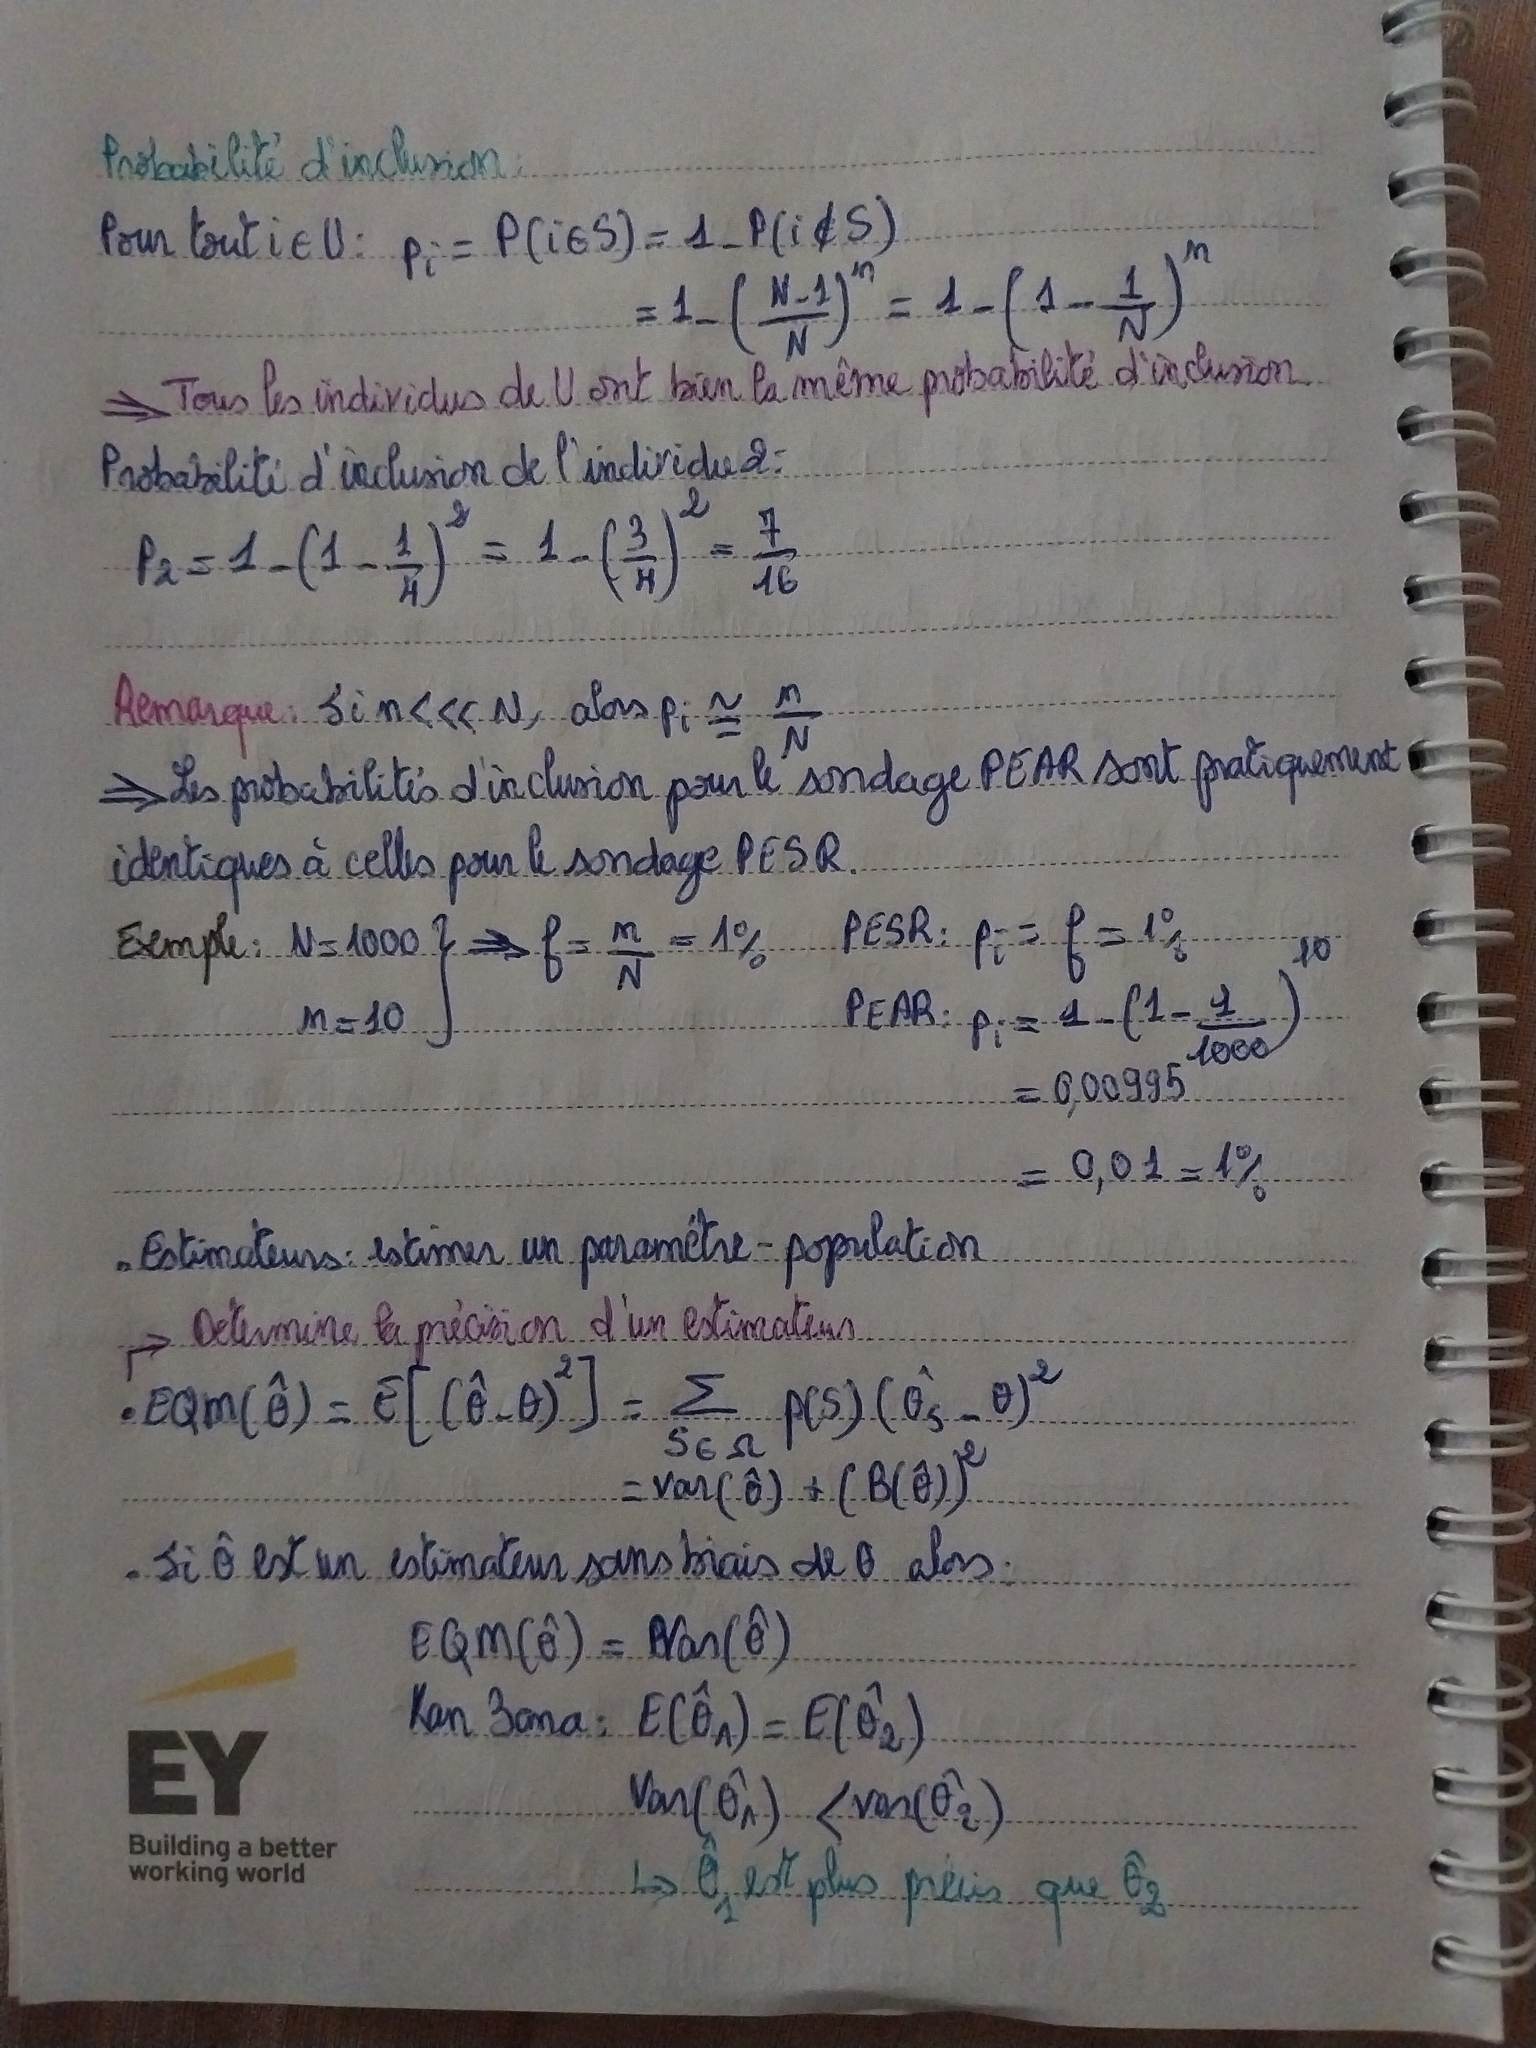 Probabilité d'inclusion:
Pour tout i ∈ U: pi = P(i ∈ S) = 1 - P(i ∉ S)
= 1 - ((N-1)/N)^n = 1 - (1 - 1/N)^n
⇒ Tous les individus de U ont bien la même probabilité d'inclusion.
Probabilité d'inclusion de l'individu 2:
P2 = 1 - (1 - 1/4)^2 = 1 - (3/4)^2 = 7/16
Remarque: Si n <<< N, alors pi ≅ n/N
⇒ Les probabilités d'inclusion pour le sondage PEAR sont pratiquement
identiques à celles pour le sondage PESR.
Exemple: N = 1000 } ⇒ f = n/N = 1% PESR: pi = f = 1%
n = 10 PEAR: pi = 1 - (1 - 1/1000)^10
= 0,00995
= 0,01 = 1%
. Estimateurs: estimer un paramètre - population
↱ Détermine la précision d'un estimateur
• EQM(θ̂) = E[(θ̂ - θ)^2] = Σ S∈Ω p(S) (θ̂s - θ)^2
= Var(θ̂) + (B(θ̂))^2
. Si θ̂ est un estimateur sans biais de θ alors:
EQM(θ̂) = Var(θ̂)
Kan 3ana: E(θ̂1) = E(θ̂2)
Var(θ̂1) < var(θ̂2)
↳ θ̂1 est plus précis que θ̂2
EY
Building a better
working world